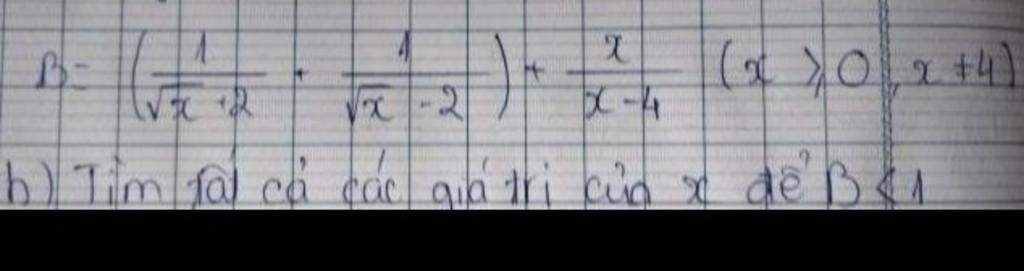 B = (1/(√x + 2) + 1/(√x - 2)) + x/(x - 4) (x ≥ 0, x ≠ 4)
b) Tìm tất cả các giá trị của x để B < 1